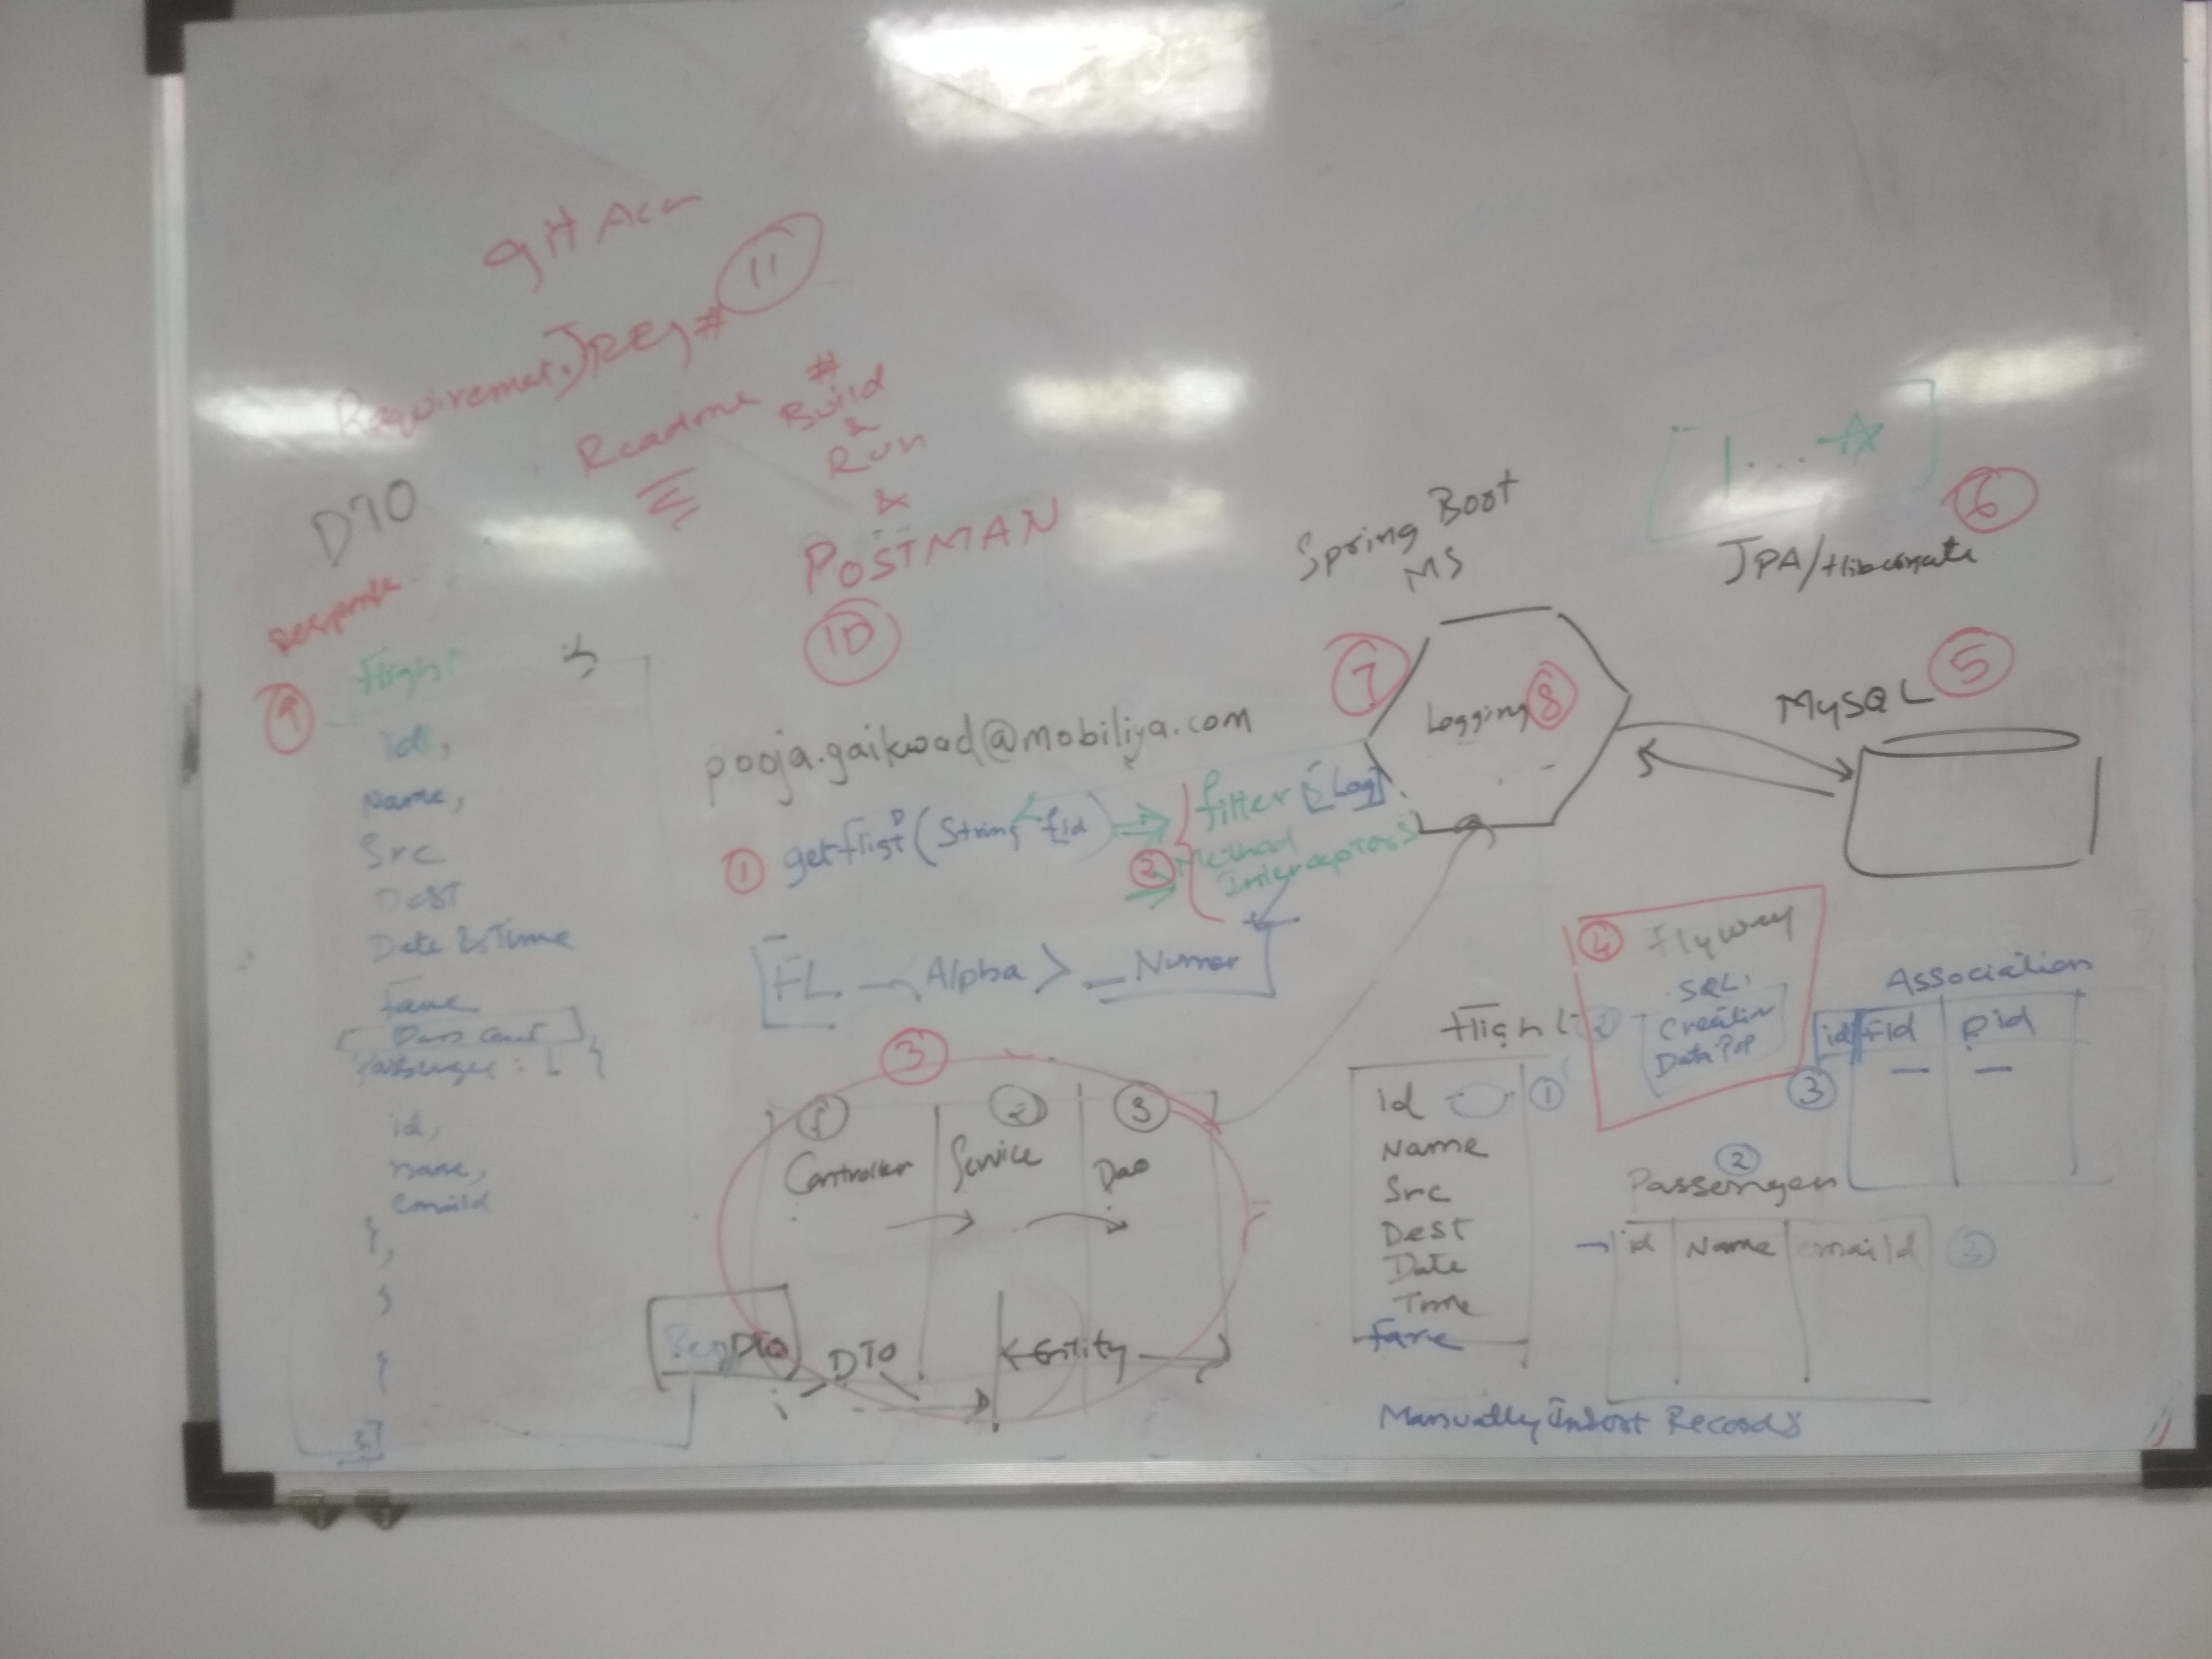 git Acc
11
Requiremet.JPEG #
Readme
#
Build
&
Run
&
POSTMAN
10
DTO
Response
9
Flight
id,
Name,
Src
Dest
Date & Time
Fare
Pass Count
Passenger : [ {
id,
name,
emaild
},
}
{
}]
pooja.gaikwad@mobiliya.com
1 getFligt (String fid)
2
filter [Log]
Method
Interceptors
FL Alpha > Numer
3
1 2 3
Controller Service Dao
DTO
DTO
Entity
Spring Boot
MS
7
Logging 8
1...*
6
JPA/Hibernate
MySQL 5
4 Flyway
SQL.
Creation
Data Pop
Association
id Fid Pid
3
Flight 2
id 1
Name
Src
Dest
Date
Time
Fare
2
Passenger
id Name emaild 3
Manually Insert Records